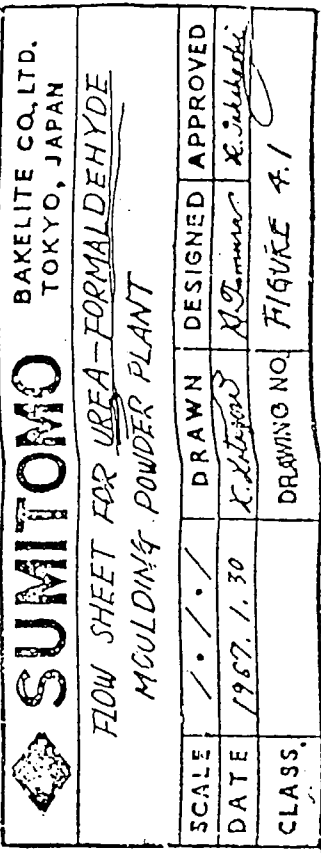 SUMITOMO BAKELITE CO., LTD.
TOKYO, JAPAN
FLOW SHEET FOR UREA-FORMALDEHYDE
MOULDING POWDER PLANT
SCALE DRAWN DESIGNED APPROVED
DATE 1967. 1. 30
CLASS. DRAWING NO. FIGURE 4.1